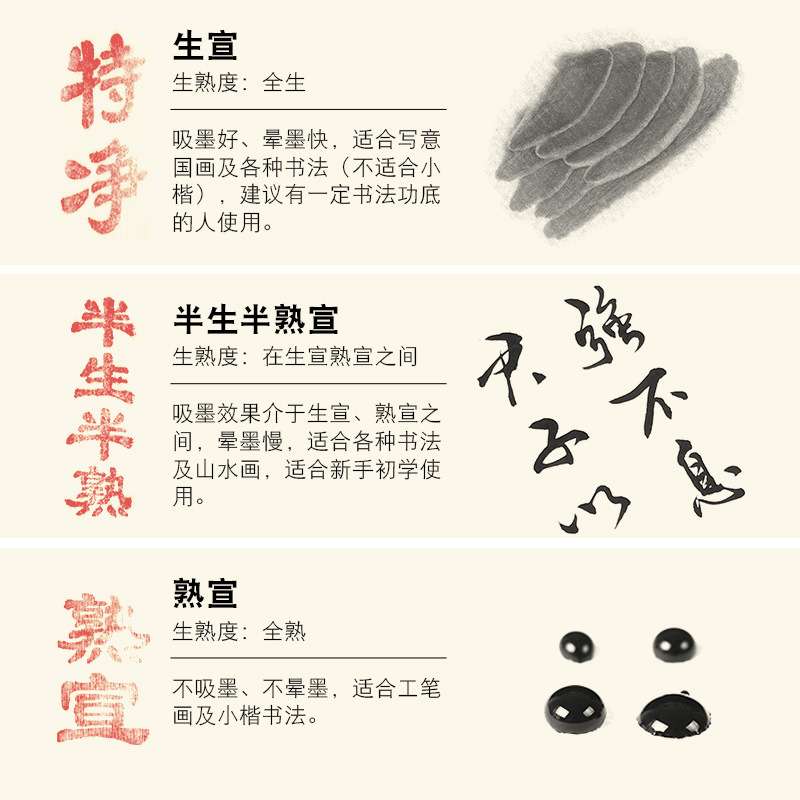 特净
生宣
生熟度：全生
吸墨好、晕墨快，适合写意
国画及各种书法（不适合小
楷），建议有一定书法功底
的人使用。
半生半熟
半生半熟宣
生熟度：在生宣熟宣之间
吸墨效果介于生宣、熟宣之
间，晕墨慢，适合各种书法
及山水画，适合新手初学使
用。
强不息
君子以
熟宣
熟宣
生熟度：全熟
不吸墨、不晕墨，适合工笔
画及小楷书法。